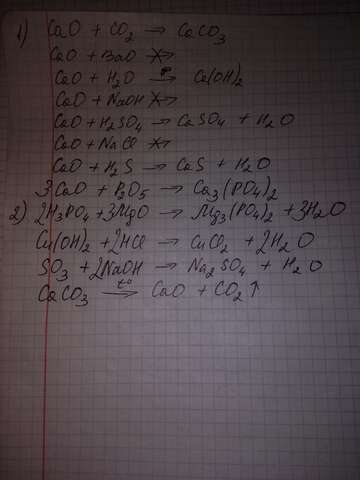 1) CaO + CO₂ → CaCO₃
CaO + BaO ↛
CaO + H₂O → Ca(OH)₂
CaO + NaOH ↛
CaO + H₂SO₄ → CaSO₄ + H₂O
CaO + NaCl ↛
CaO + H₂S → CaS + H₂O
3CaO + P₂O₅ → Ca₃(PO₄)₂
2) 2H₃PO₄ + 3MgO → Mg₃(PO₄)₂ + 3H₂O
Cu(OH)₂ + 2HCl → CuCl₂ + 2H₂O
SO₃ + 2NaOH → Na₂SO₄ + H₂O
CaCO₃ →t° CaO + CO₂↑